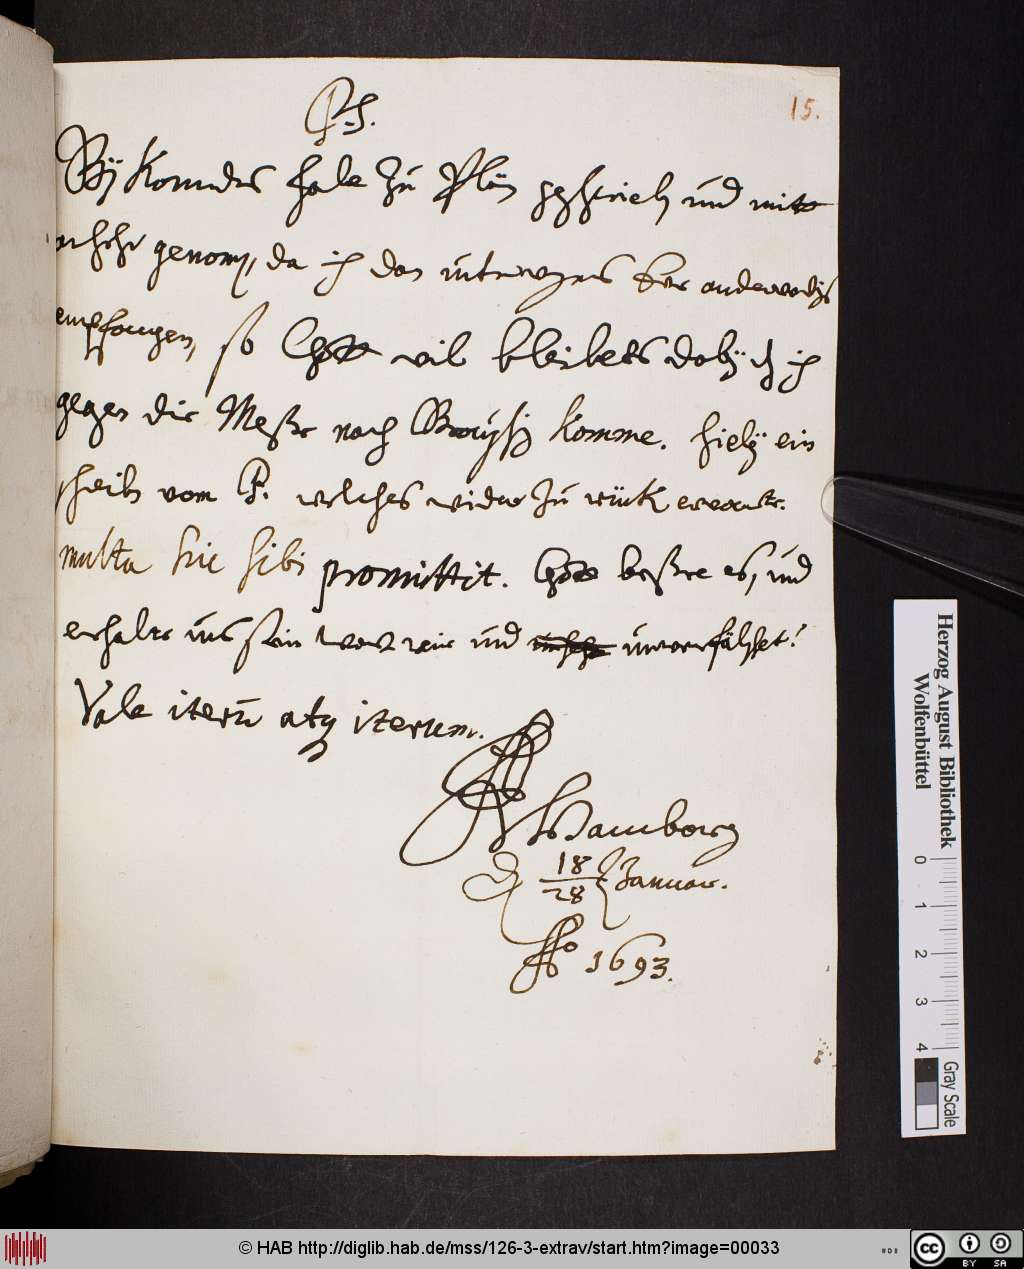 PS.
15.
Bÿ kommdes habe zu Plön geschrieb und mit
genom, da ich das unterweges
empfangen, so Gott wil bleibets dabÿ dz ich
gegen die Meße nach Braunß komme. hiebÿ ein
schreib vom P. welches wider zu rück erwarte.
multa hic sibi promittit. Gott beßere es, und
erhalte uns sein wort rein und unverfälschet!
Vale iterū atq iterum.
Hamborg
d 18/28 Januar.
Ao 1693.
Herzog August Bibliothek
Wolfenbüttel
0 1 2 3 4
Gray Scale
© HAB http://diglib.hab.de/mss/126-3-extrav/start.htm?image=00033
cc BY SA